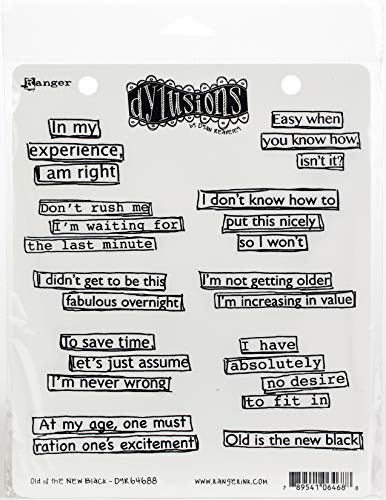 Ranger
dylusions
by Dyan Reaveley
In my
experience,
I am right
Easy when
you know how,
isn't it?
Don't rush me
I'm waiting for
the last minute
I don't know how to
put this nicely
so I won't
I didn't get to be this
fabulous overnight
I'm not getting older
I'm increasing in value
To save time,
let's just assume
I'm never wrong
I have
absolutely
no desire
to fit in
At my age, one must
ration one's excitement
Old is the new black
Old is the New Black - DYR64688
www.rangerink.com
7 89541 06468 8